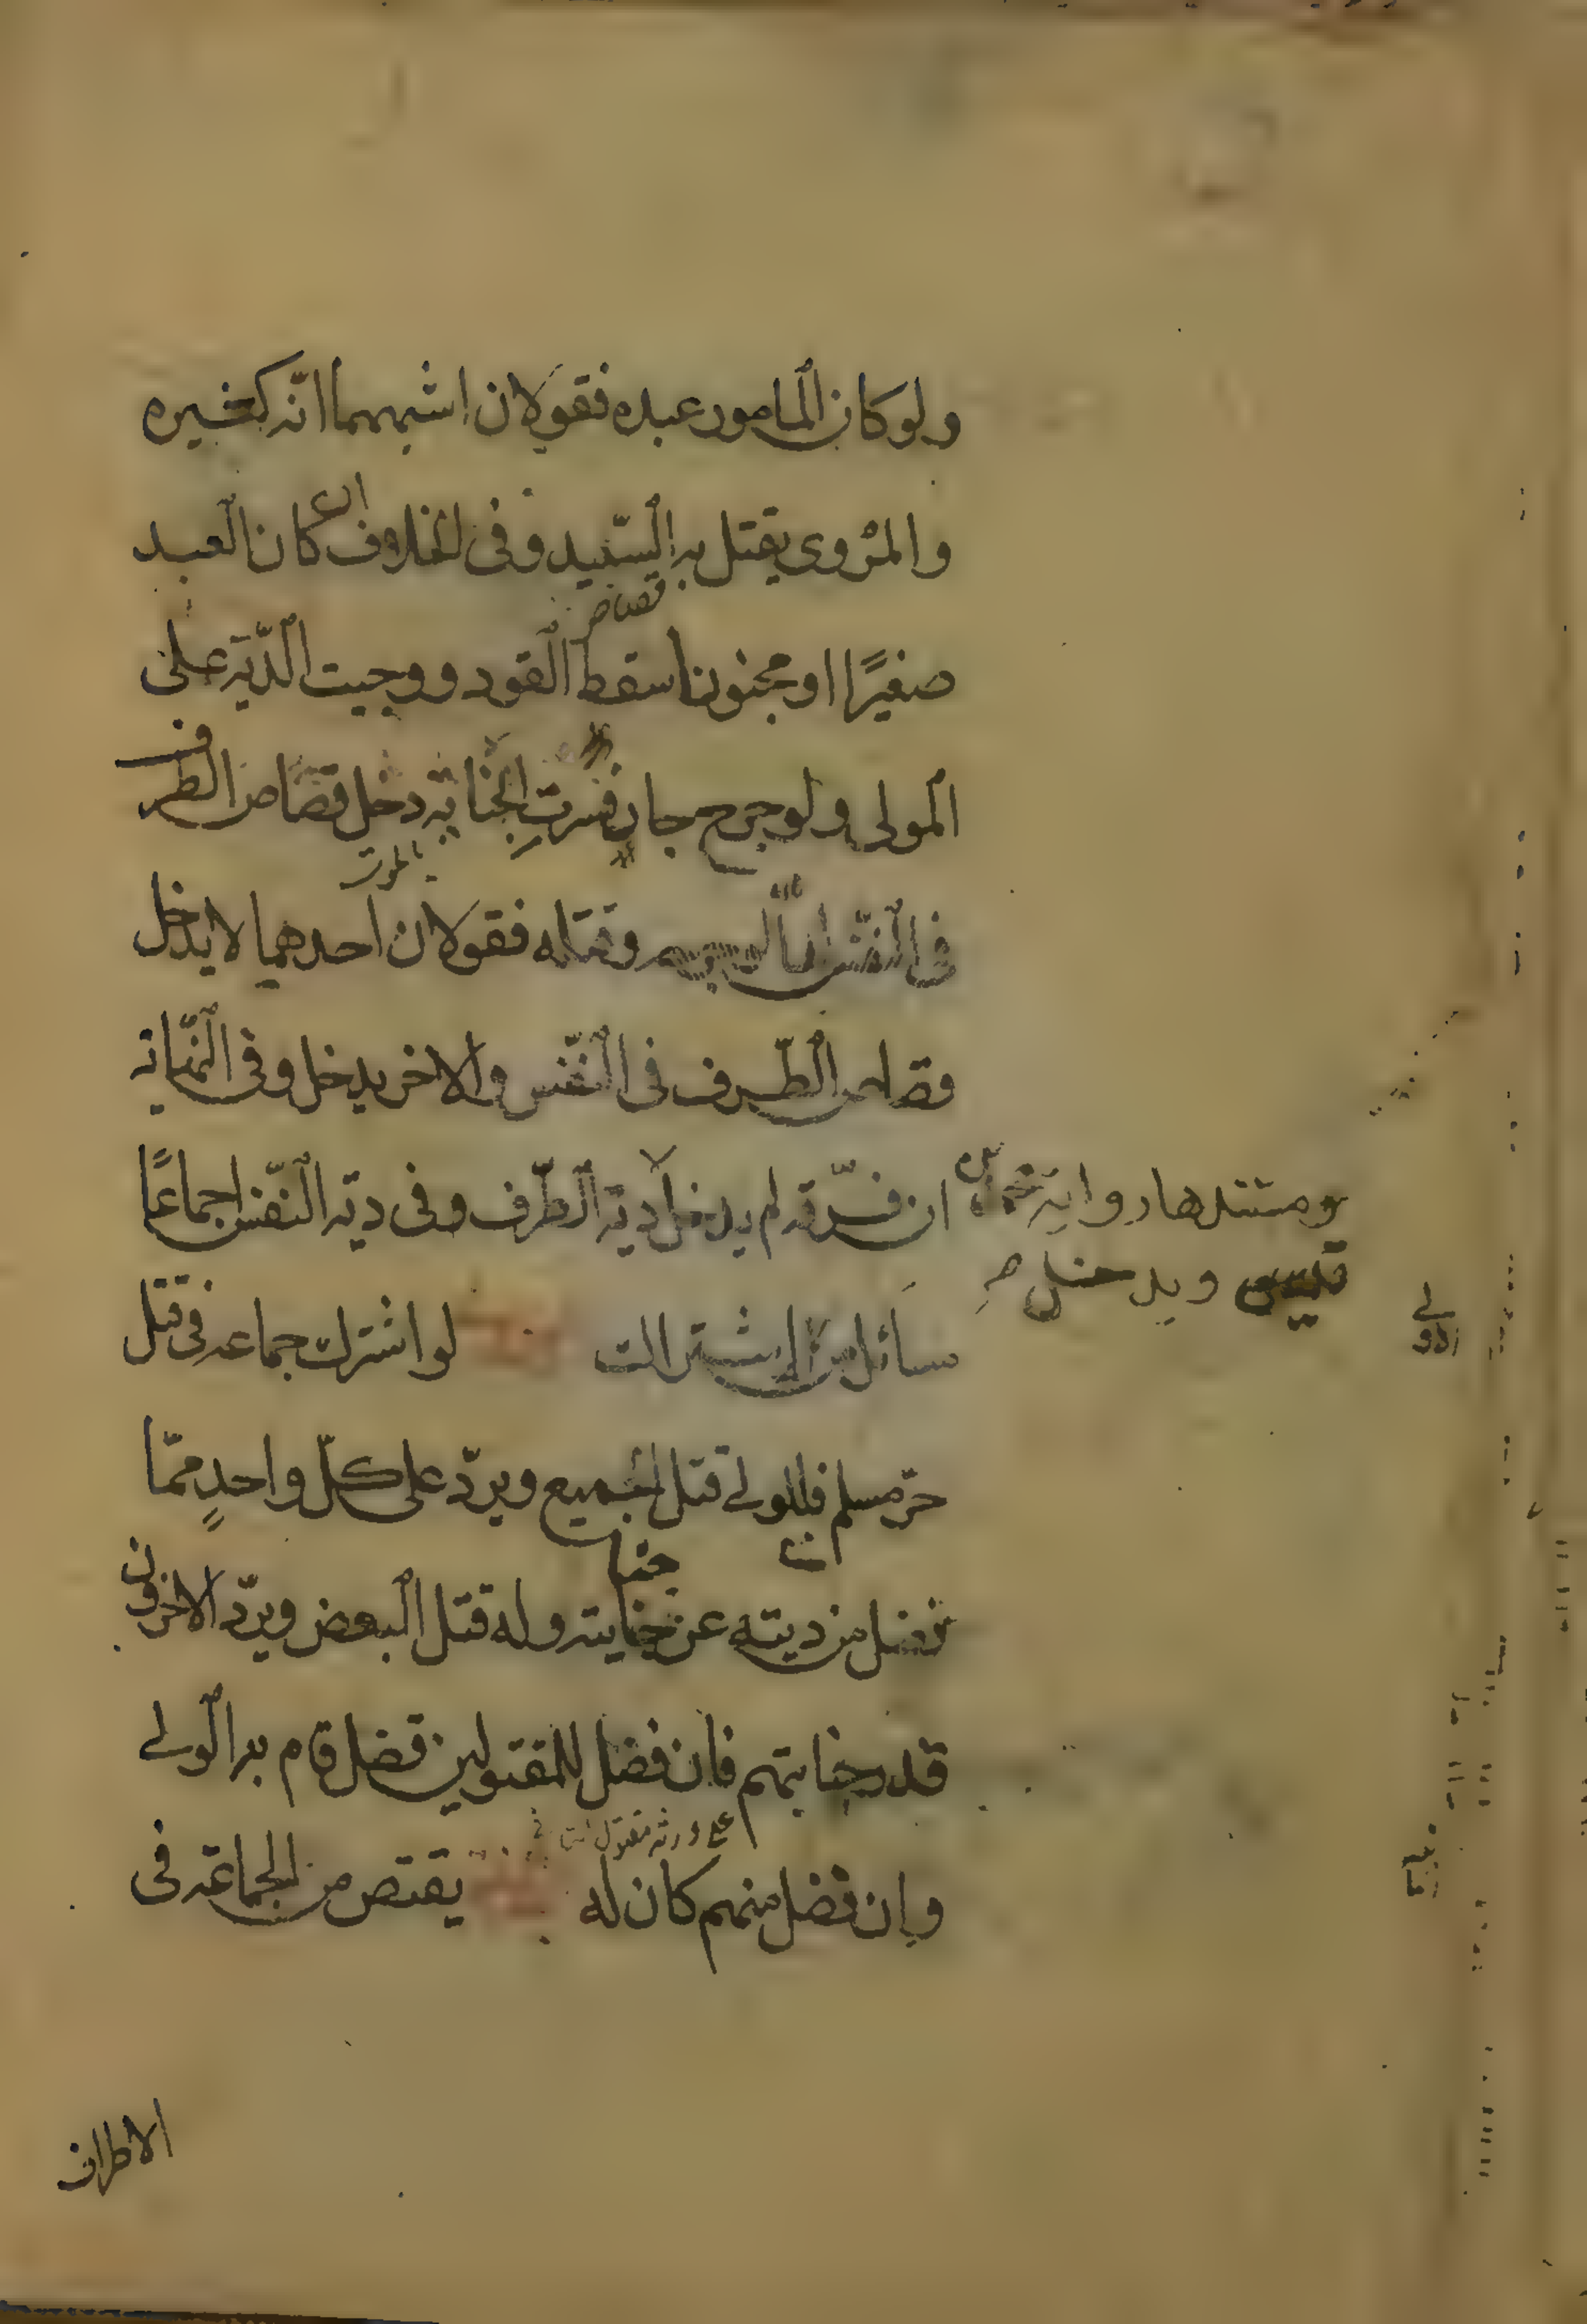 ولو كان المامور عبده فقولان اشبههما انّه كغيره
والمروى يقتل به السّيد وفى الخلاف ان كان العبد
قصاص
صغيرًا او مجنونا سقط القود ووجبت الدّية على
المولى ولو جرح جان فسرت الجناية دخل قصاص الطرف
بالموت
فى النفس اما لو جرحه وقتله فقولان احدهما لا يدخل
قصاص الطّرف فى النّفس والاخر يدخل وفى النّهاية
ان فرّقه لم يدخل دية الطّرف وفى دية النّفس اجماعًا
ومستندها رواية محمّد بن
قيس ويدخل
مسائل من الاشتراك لو اشترك جماعة فى قتل
حرّ مسلم فللولى قتل الجميع ويردّ على كلّ واحدٍ ممّا
فضل من ديته عن جنايته وله قتل البعض ويردّ الاخرون
قدر جنايتهم فان فضل للمقتولين فضل قام به الولى
على ورثه مقتول
وإن فضل منهم كان له يقتص من الجماعة فى
الاطراف